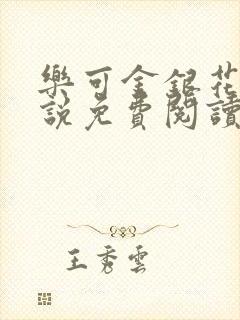 樂可金銀花
說免費閱讀
王秀雲